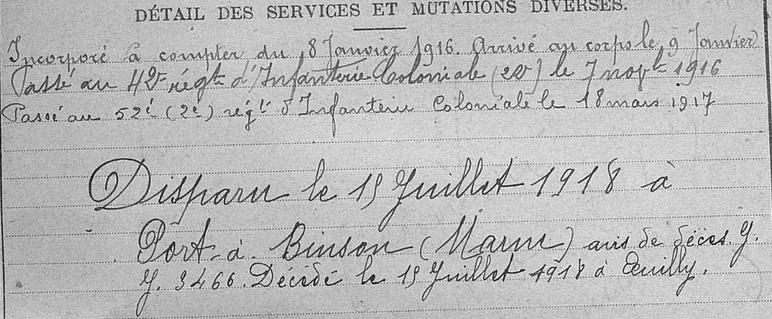 DÉTAIL DES SERVICES ET MUTATIONS DIVERSES.
Incorporé à compter du 8 Janvier 1916. Arrivé au corps le 9 Janvier
Passé au 42e régt d'Infanterie Coloniale (22e) le 7 novbre 1916
Passé au 52e (2e) régt d'Infanterie Coloniale le 18 mars 1917
Disparu le 15 Juillet 1918 à
Port-à-Binson (Marne) avis de décès Y.
Y. 3466. Décédé le 15 Juillet 1918 à Œuilly.